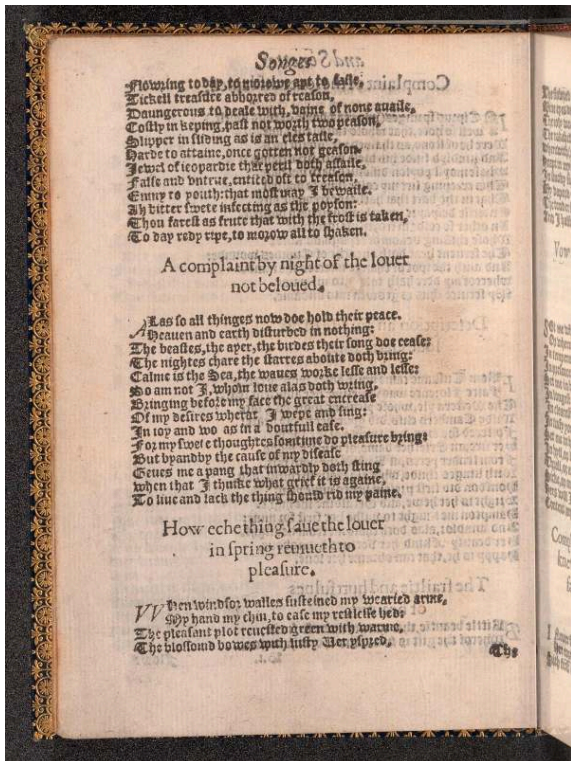 Songes
Flowring to day, to morowe apt to faile,
Tickell treasure abhorred of reason,
Daungerous to deale with, vaine of none auaile,
Costly in keping, past not worth two peason,
Slipper in sliding as is an eles taile,
Harde to attaine, once gotten not geason.
Jewel of ieopardie that peril doth assaile,
False and vntrue, enticed oft to treason,
Enmy to youth: that most may I bewaile.
Ah bitter swete infecting as the poyson:
Thou farest as frute that with the frost is taken,
To day redy ripe, to morow all to shaken.
A complaint by night of the louer
not beloued.
ALas so all thinges now doe hold their peace.
Heauen and earth disturbed in nothing:
The beastes, the ayer, the birdes their song doe cease:
The nightes chare the starres aboute doth bring:
Calme is the Sea, the waues worke lesse and lesse:
So am not I, whom loue alas doth wring,
Bringing before my face the great encrease
Of my desires wherat I wepe and sing:
In ioy and wo as in a doutfull ease.
For my swete thoughtes sontime do pleasure bring:
But byandby the cause of my disease
Geues me a pang that inwardly doth sting
when that I thinke what grief it is againe,
To liue and lack the thing should rid my paine.
How eche thing saue the louer
in spring reuiueth to
pleasure.
VVHen windsor walles susteined my wearied arme,
My hand my chin, to ease my restlesse hed:
The pleasant plot reuested green with warme,
The blossomd bowes with lusty Ver yspred,
The